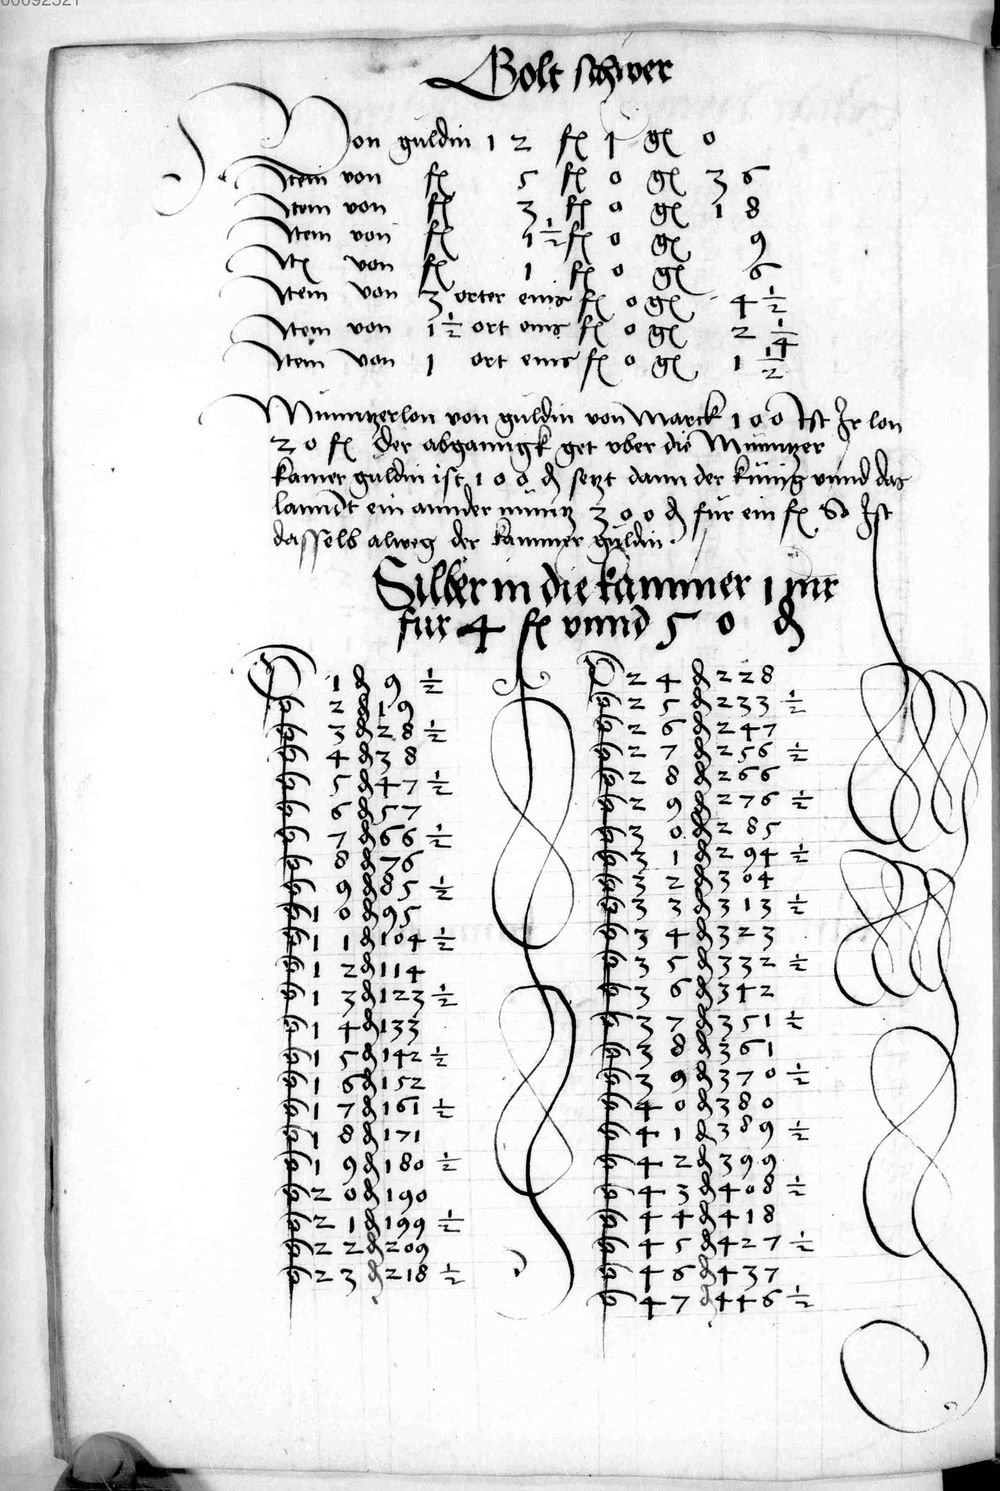 00092521
Golt schwer
Von guldin 1 2 fl 1 gl 0
Item von fl 5 fl 0 gl 3 6
Item von fl 3 fl 0 gl 1 8
Item von fl 1 ½ fl 0 gl 9
Itl von fl 1 fl 0 gl 6
Item von 3 orter eins fl 0 gl 4 ½
Item von 1 ½ ort eins fl 0 gl 2 ¼
Item von 1 ort eins fl 0 gl 1 ½
Munntzerlon von guldin von Marck 1 0 0 Ist Ir lon
2 0 fl der abganngk get vber die Munntzer
kamer guldin ist 1 0 0 ₰ setzt dann der kunig vnnd das
lanndt ein annder muntz 3 0 0 ₰ fur ein fl So Ist
dasselb alweg der kammer guldin.
Silber in die kammer 1 mr
fur 4 fl vnnd 5 0 ₰
1 ₰ 9 ½
2 ₰ 1 9
3 ₰ 2 8 ½
4 ₰ 3 8
5 ₰ 4 7 ½
6 ₰ 5 7
7 ₰ 6 6 ½
8 ₰ 7 6
9 ₰ 8 5 ½
1 0 ₰ 9 5
1 1 ₰ 1 0 4 ½
1 2 ₰ 1 1 4
1 3 ₰ 1 2 3 ½
1 4 ₰ 1 3 3
1 5 ₰ 1 4 2 ½
1 6 ₰ 1 5 2
1 7 ₰ 1 6 1 ½
1 8 ₰ 1 7 1
1 9 ₰ 1 8 0 ½
2 0 ₰ 1 9 0
2 1 ₰ 1 9 9 ½
2 2 ₰ 2 0 9
2 3 ₰ 2 1 8 ½
2 4 ₰ 2 2 8
2 5 ₰ 2 3 3 ½
2 6 ₰ 2 4 7
2 7 ₰ 2 5 6 ½
2 8 ₰ 2 6 6
2 9 ₰ 2 7 6 ½
3 0 ₰ 2 8 5
3 1 ₰ 2 9 4 ½
3 2 ₰ 3 0 4
3 3 ₰ 3 1 3 ½
3 4 ₰ 3 2 3
3 5 ₰ 3 3 2 ½
3 6 ₰ 3 4 2
3 7 ₰ 3 5 1 ½
3 8 ₰ 3 6 1
3 9 ₰ 3 7 0 ½
4 0 ₰ 3 8 0
4 1 ₰ 3 8 9 ½
4 2 ₰ 3 9 9
4 3 ₰ 4 0 8 ½
4 4 ₰ 4 1 8
4 5 ₰ 4 2 7 ½
4 6 ₰ 4 3 7
4 7 ₰ 4 4 6 ½